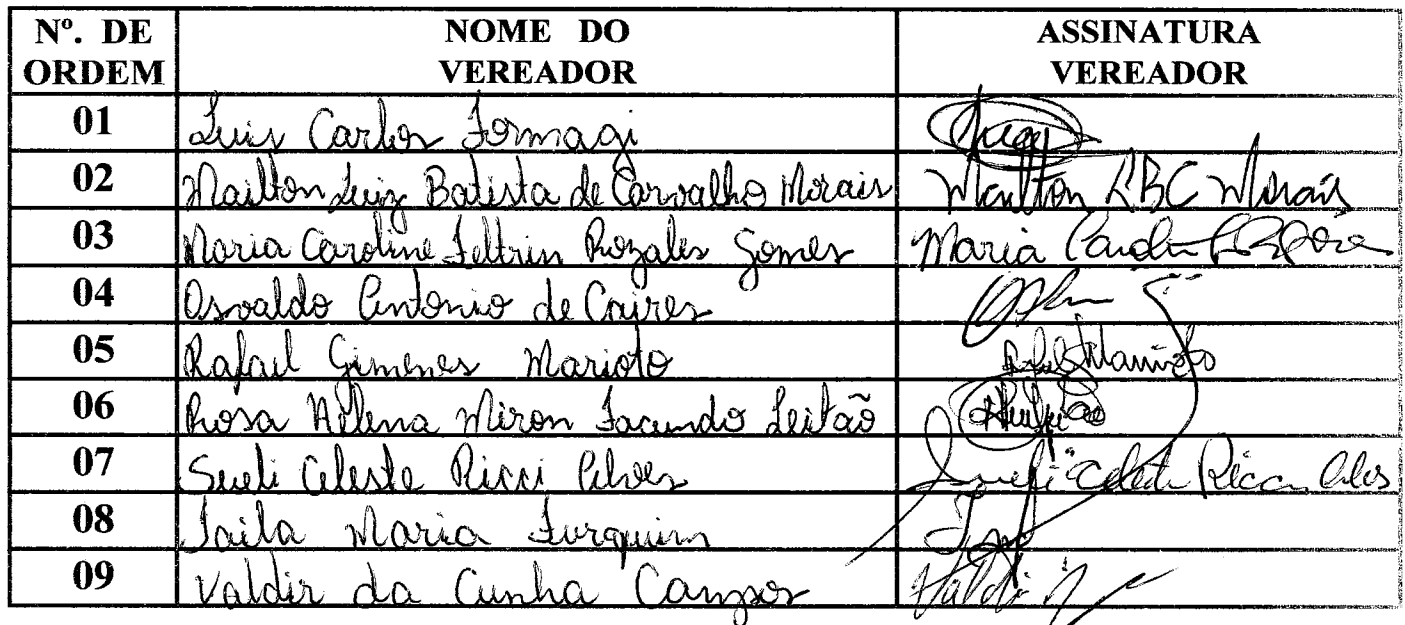 Nº. DE ORDEM NOME DO VEREADOR ASSINATURA VEREADOR
01 Luis Carlos Formagi
02 Mailton Luiz Batista de Carvalho Morais Mailton LBC Morais
03 Maria Caroline Feltrin Rozales Gomes Maria
04 Osvaldo Antonio de Caires
05 Rafael Gimenes Marioto
06 Rosa Helena Miron Facundo Leitão
07 Sueli Celeste Ricci Alves Sueli Celeste Ricci Alves
08 Taila Maria Furquim
09 Valdir da Cunha Campos Valdir